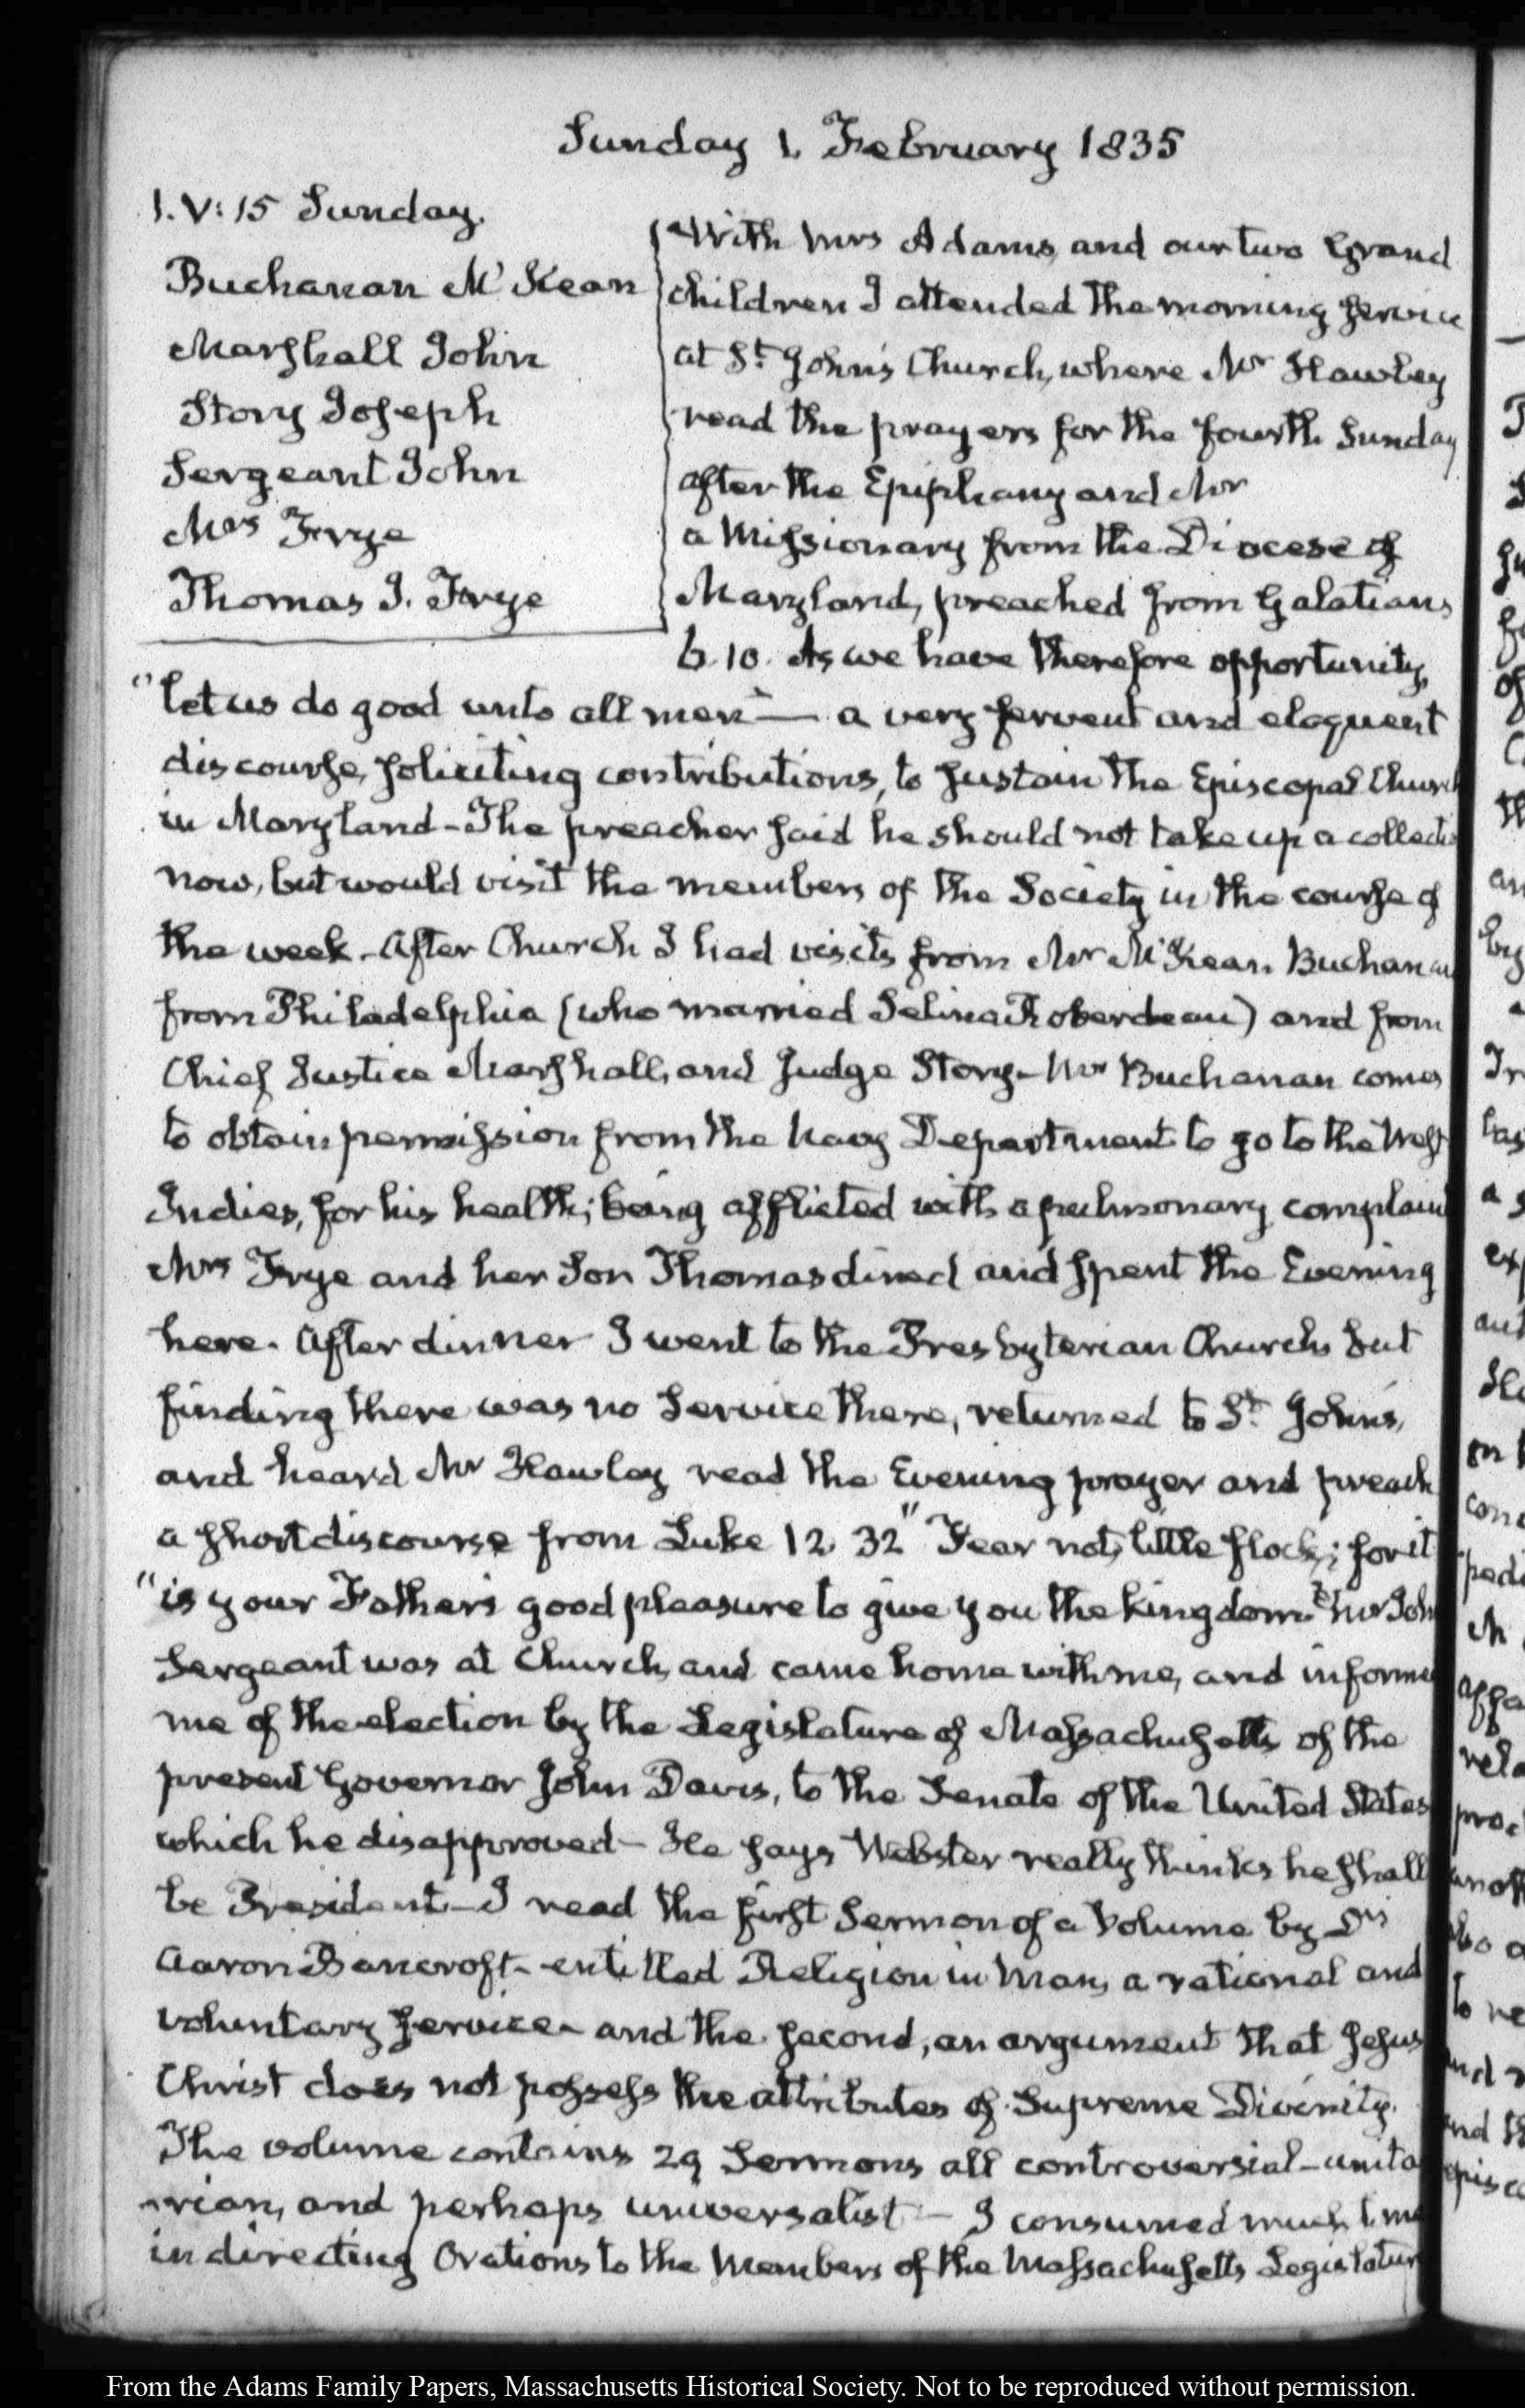 Sunday 1. February 1835
1. V: 15 Sunday.
Buchanan McKean
Marshall John
Story Joseph
Sergeant John
Mrs Frye
Thomas J. Frye
With Mrs Adams, and our two Grand
children I attended the morning service
at St. John's Church, where Mr Hawley
read the prayers for the fourth Sunday
after the Epiphany and Mr
a Missionary from the Diocese of
Maryland, preached from Galatians
6. 10. As we have therefore opportunity,
"let us do good unto all men" — a very fervent and eloquent
discourse, soliciting contributions, to sustain the Episcopal Church
in Maryland - The preacher said he should not take up a collectio
now, but would visit the members of the Society in the course of
the week. After Church I had visits from Mr McKean Buchanan
from Philadelphia (who married Selina Roberdeau) and from
Chief Justice Marshall, and Judge Story - Mr Buchanan comes
to obtain permission from the Navy Department to go to the West
Indies, for his health; being afflicted with a pulmonary complaint
Mrs Frye and her Son Thomas dined and spent the Evening
here. After dinner I went to the Presbyterian Church but
finding there was no Service there, returned to St. John's,
and heard Mr Hawley read the Evening prayer and preach
a short discourse from Luke 12. 32 "Fear not, little flock; for it
"is your Father's good pleasure to give you the kingdom." Mr John
Sergeant was at Church, and came home with me, and informed
me of the election by the Legislature of Massachusetts of the
present Governor John Davis, to the Senate of the United States
which he disapproved - He says Webster really thinks he shall
be President - I read the first Sermon of a Volume by Dr
Aaron Bancroft - entitled Religion in Man, a rational and
voluntary service - and the second, an argument that Jesus
Christ does not possess the attributes of Supreme Divinity.
The volume contains 29 Sermons all controversial - unita
rian, and perhaps universalist - I consumed much time
in directing Orations to the Members of the Massachusetts Legislature
From the Adams Family Papers, Massachusetts Historical Society. Not to be reproduced without permission.